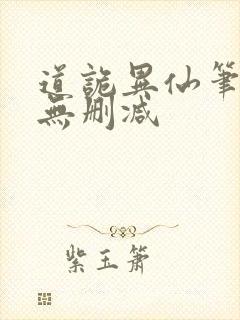 道詭異仙筆
無刪減
紫玉簫